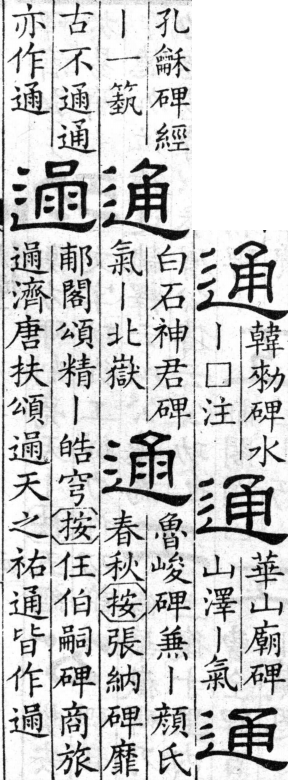 通
韓勑碑水
丨□注
通
華山廟碑
山澤丨氣
通
孔龢碑經
丨一蓺
通
白石神君碑
氣丨北嶽
通
魯峻碑兼丨顏氏
春秋按張納碑靡
古不通通
亦作通
通
郙閣頌精丨皓穹按任伯嗣碑商旅
通濟唐扶頌通天之祐通皆作通